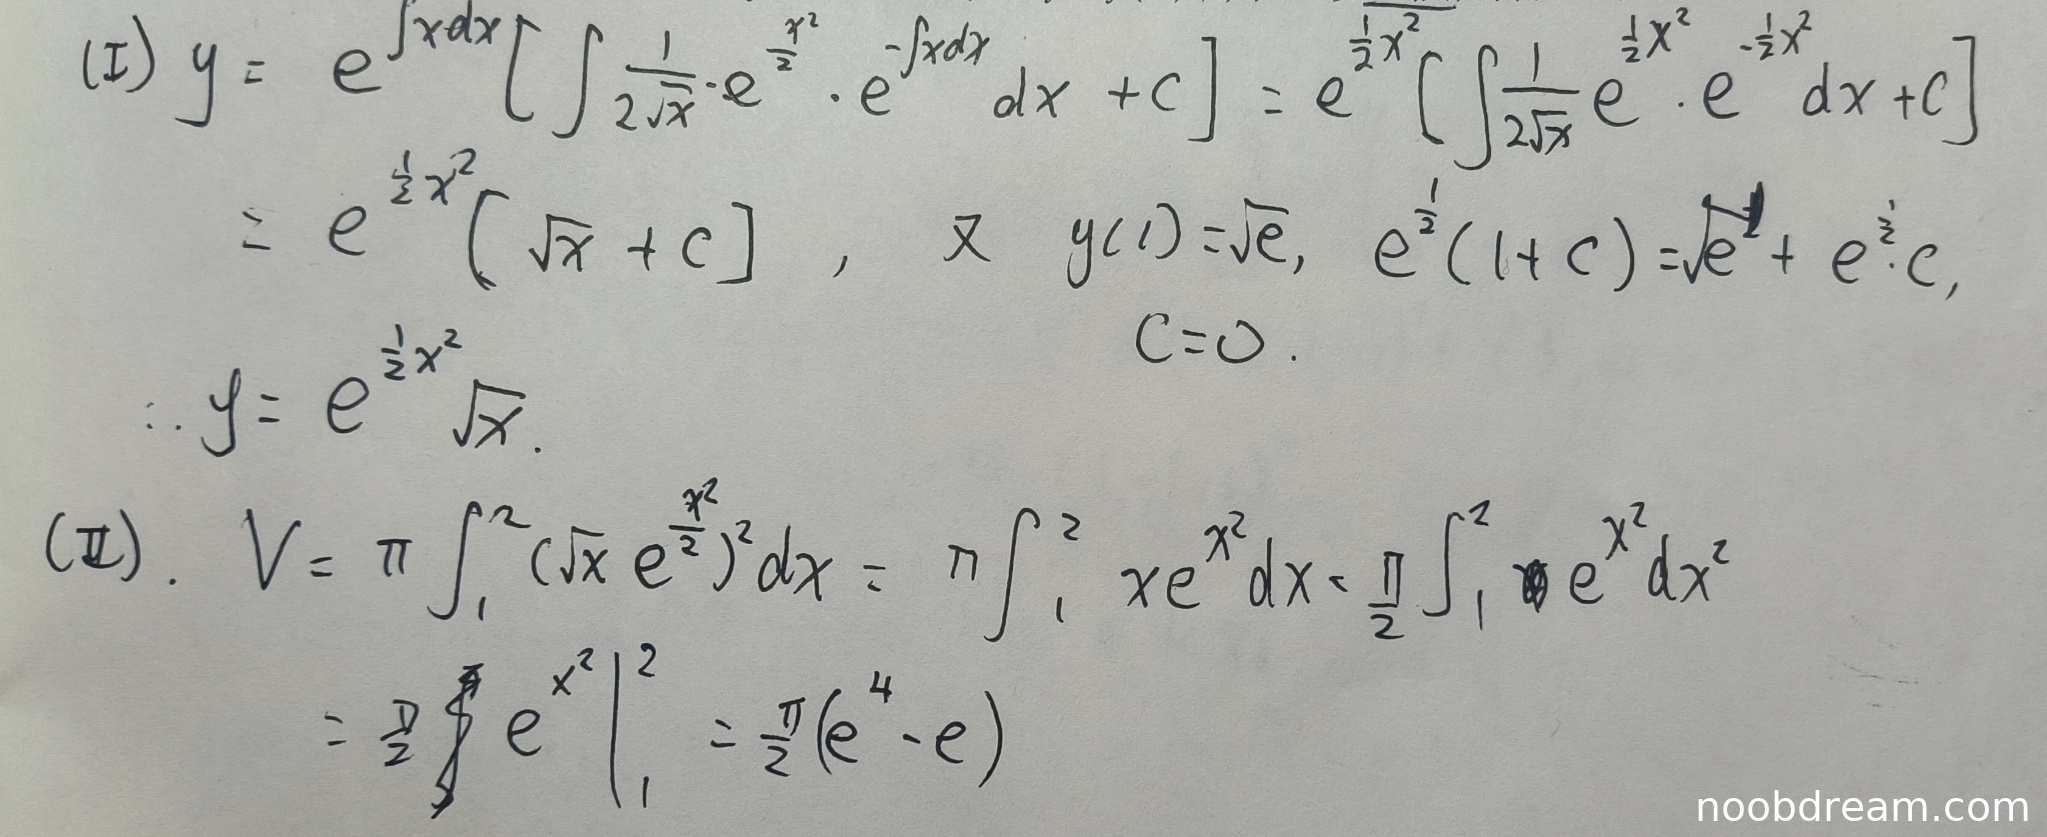 (I) y = e^{∫xdx}[∫ \frac{1}{2√x}·e^{\frac{x²}{2}}·e^{-∫xdx}dx + C] = e^{\frac{1}{2}x²}[∫\frac{1}{2√x}e^{\frac{1}{2}x²}·e^{-\frac{1}{2}x²}dx + C]
= e^{\frac{1}{2}x²}[√x + C], 又 y(1)=√e, e^{\frac{1}{2}}(1+C)=√e + e^{\frac{1}{2}}·C,
C=0.
∴ y = e^{\frac{1}{2}x²}√x.
(II). V = π∫_1^2(√x e^{\frac{x²}{2}})²dx = π∫_1^2 xe^{x²}dx = \frac{π}{2}∫_1^2 e^{x²}dx²
= \frac{π}{2} e^{x²}|_1^2 = \frac{π}{2}(e^4 - e)
noobdream.com